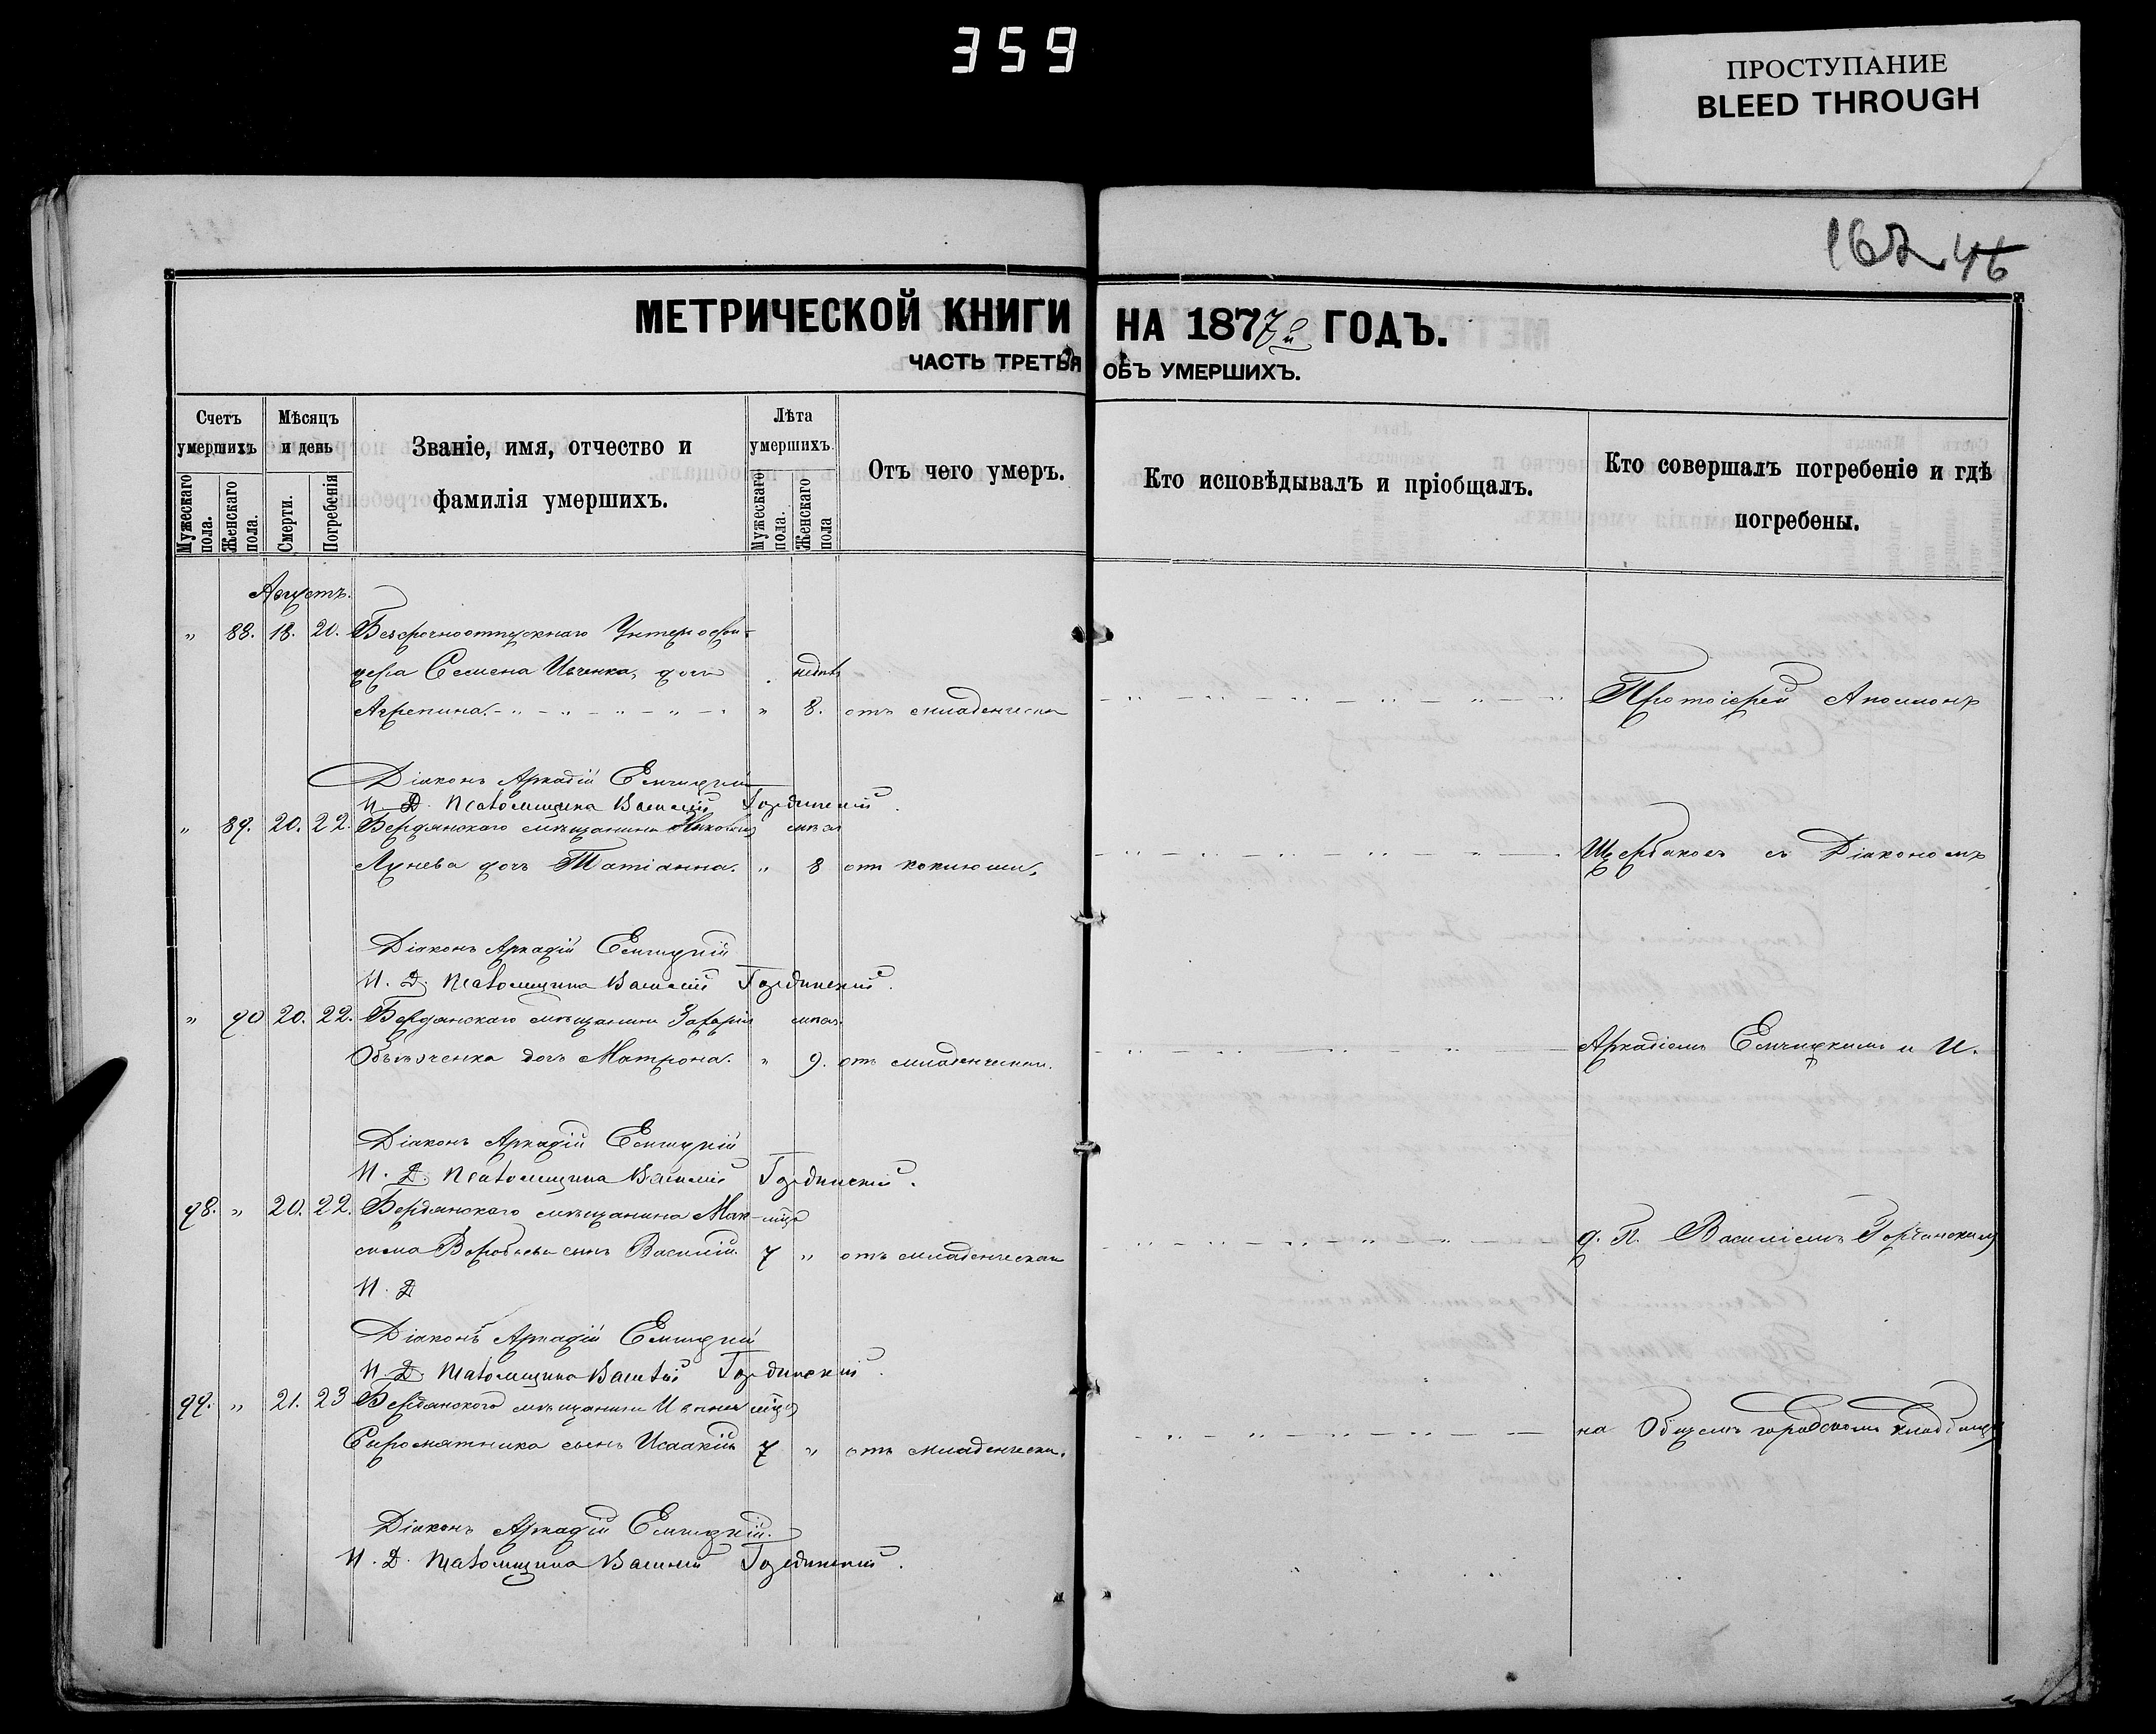 359
ПРОСТУПАНИЕ
BLEED THROUGH
162 46
МЕТРИЧЕСКОЙ КНИГИ НА 1877й ГОДЪ.
ЧАСТЬ ТРЕТЬЯ ОБЪ УМЕРШИХЪ.
Счетъ умершихъ
Мужескаго пола.
Женскаго пола.
Мѣсяцъ и день
Смерти.
Погребенія
Званіе, имя, отчество и фамилія умершихъ.
Лѣта умершихъ.
Мужескаго пола.
Женскаго пола
Отъ чего умеръ.
Кто исповѣдывалъ и пріобщалъ.
Кто совершалъ погребеніе и гдѣ погребены.
Августъ.
„ 88. 18. 20. Безсрочноотпускнаго Унтеръ офи-
цера Семена Ивченка, дочь недѣль
Агрепина. „ 8. отъ младенческа Протоіерей
Діаконъ Аркадій Емчицкій
И. Д. Псаломщика Василій Гординскій.
„ 89. 20. 22. Бердянскаго мѣщанина мѣся
Лунева дочь Татіанна. „ 8 отъ коклюша, Щербаковъ съ Діакономъ
Діаконъ Аркадій Емчицкій
И. Д. Псаломщика Василій Гординскій.
„ 90 20. 22. Бердянскаго мѣщанина Захарія мѣся.
дочь Матрона. „ 9. отъ младенческа. Аркадіемъ Емчицкимъ и И.
Діаконъ Аркадій Емчицкій
И. Д. Псаломщика Василій Гординскій.
98. „ 20. 22. Бердянскаго мѣщанина Мак-
сима сынъ Василій. 7 „ отъ младенческая д. П. Василіемъ
И. Д
Діаконъ Аркадій Емчицкій
И. Д. Псаломщика Василій Гординскій.
99. „ 21. 23 Бердянского мѣщанина
Сыромятника сынъ Исаакій 7 „ отъ младенческа. на Общемъ городскомъ кладбищѣ
Діаконъ Аркадій Емчицкій.
И. Д. Псаломщика Василій Гординскій.